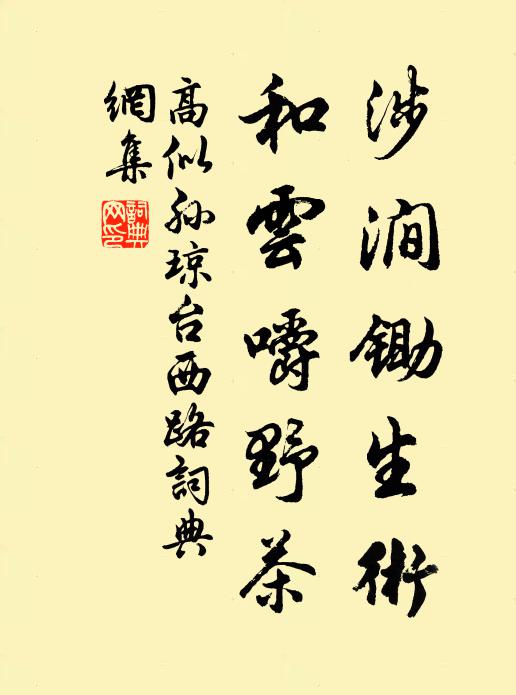 涉澗鋤生術
和雲嚼野茶
高似孙琼台西路詞典
網集
詞典网印